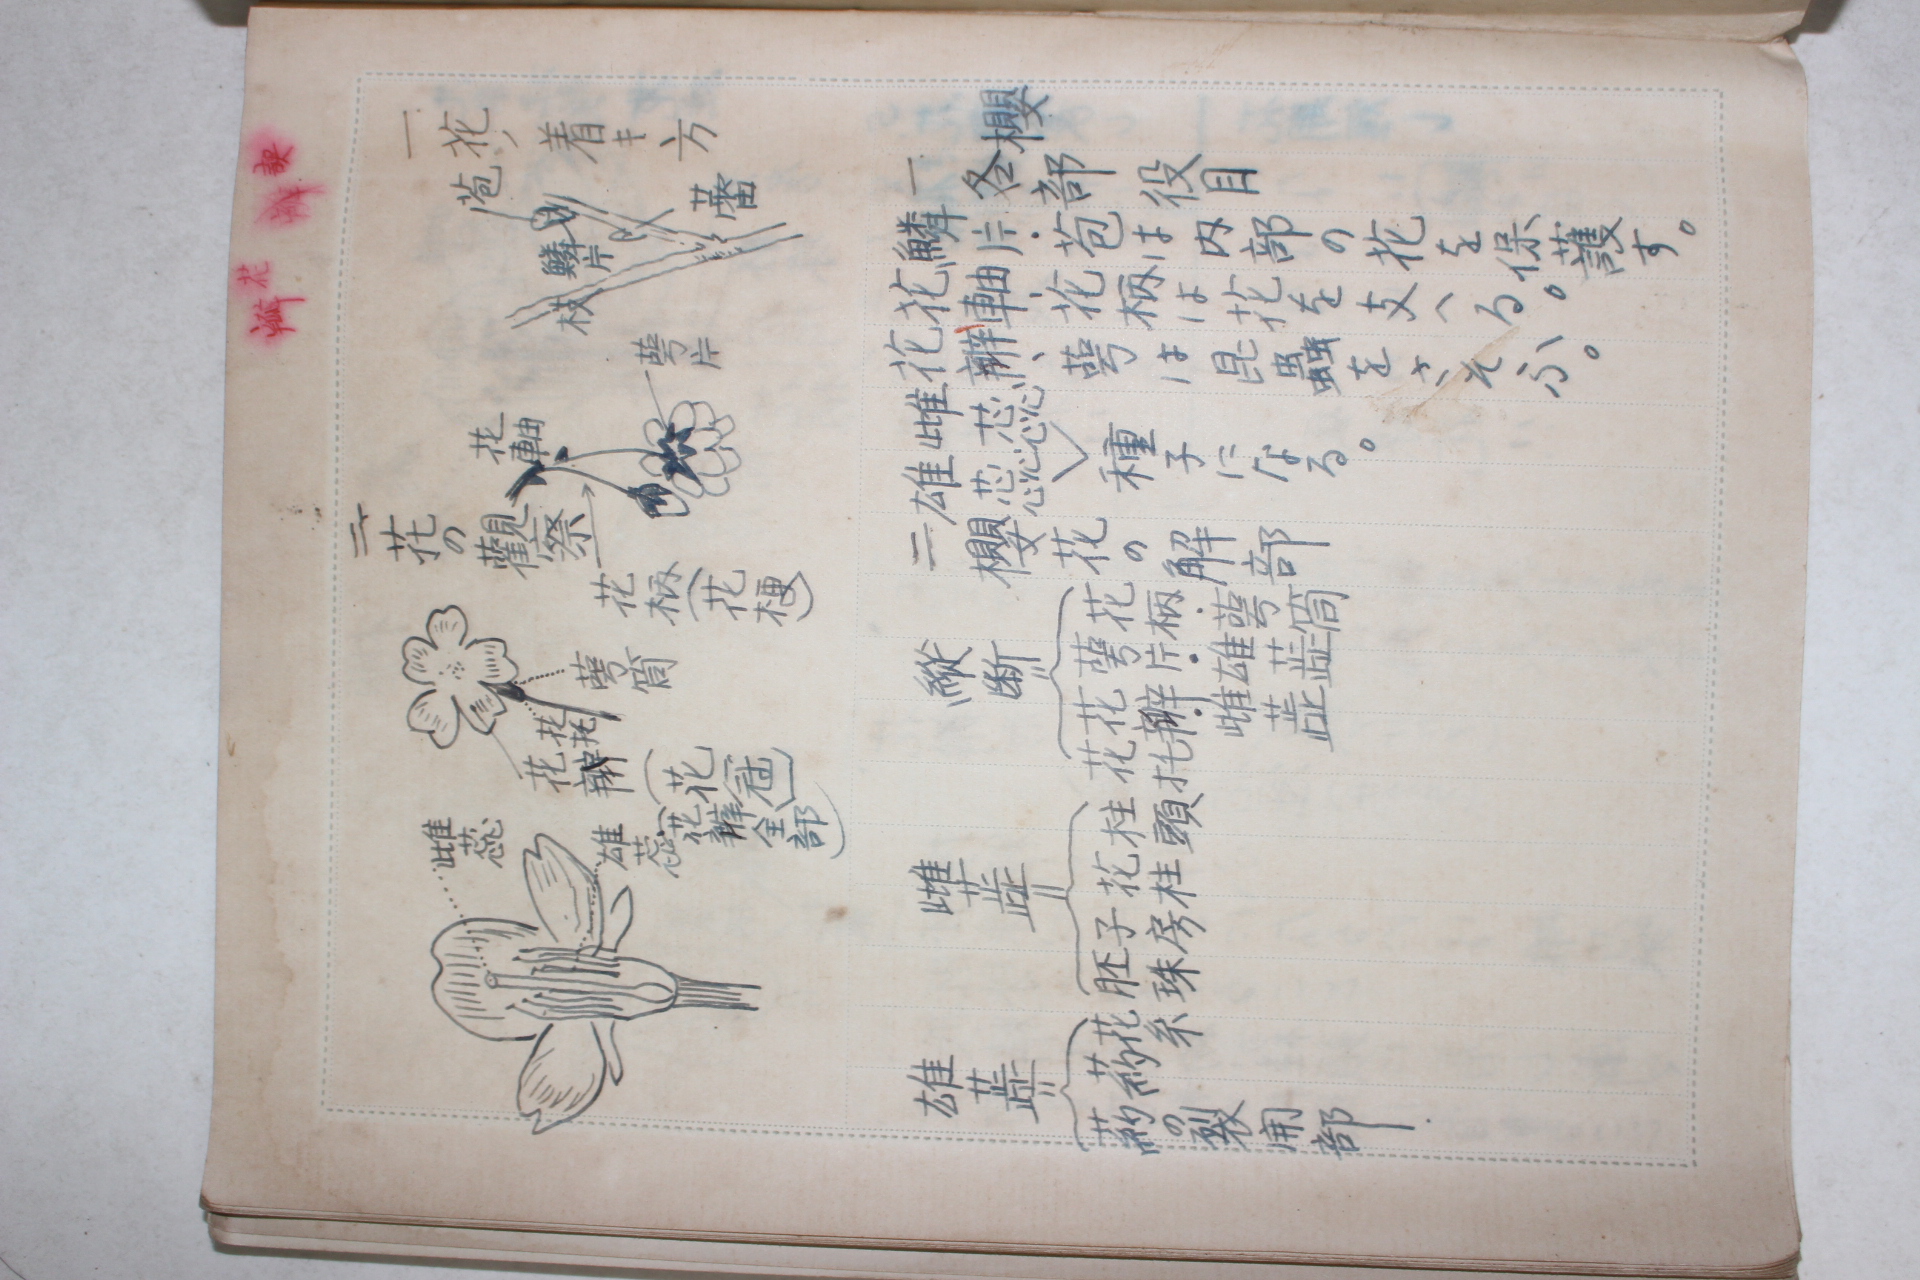 花瓣
一花ノ着キ方
苞
鱗片
蕾
枝
萼片
花軸
二、花の觀察
花柄
(花梗)
萼筒
花托
花辨
(花冠)
(花辨全部)
雌蕊
雄蕊
櫻
一各部役目
鱗片・苞は内部の花を保護す。
花軸、花柄は花を支へる。
花辨、萼は昆蟲をさそふ。
雌芯蕊
雄芯蕊
種子になる。
二櫻花の解部
縱断=
花柄・萼筒
萼片・雄蕋
花辨・雌蕋
花托
雌蕋=
柱頭
花柱
子房
胚珠
雄蕋=
花糸
葯
葯の裂開部